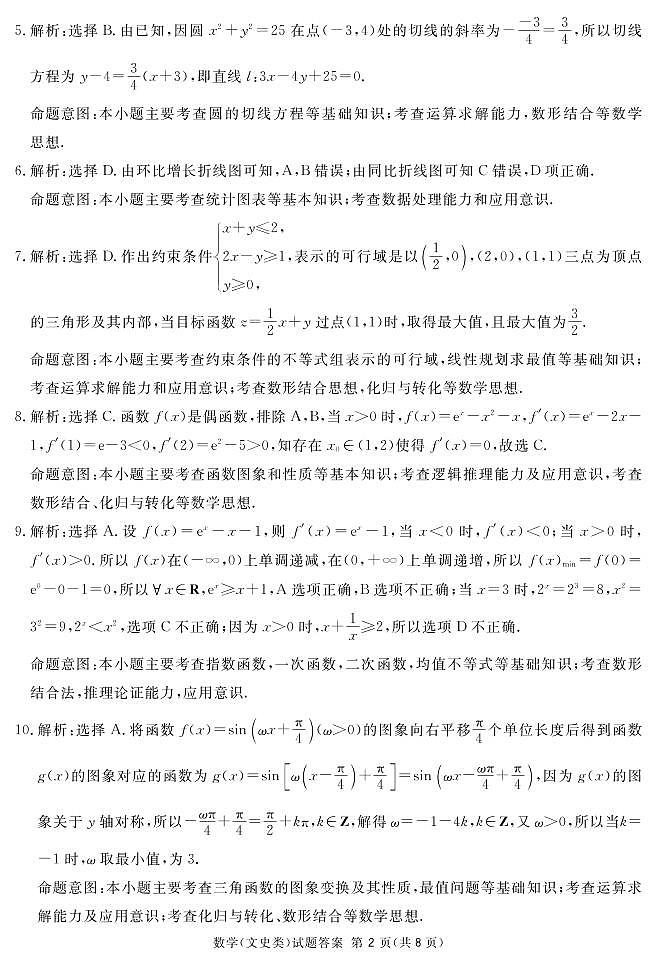 5. 解析:选择 B. 由已知,因圆 x²+y²=25 在点(-3,4)处的切线的斜率为-\frac{-3}{4}=\frac{3}{4},所以切线
方程为 y-4=\frac{3}{4}(x+3),即直线 l:3x-4y+25=0.
命题意图:本小题主要考查圆的切线方程等基础知识;考查运算求解能力,数形结合等数学
思想.
6. 解析:选择 D. 由环比增长折线图可知,A,B 错误;由同比折线图可知 C 错误,D 项正确.
命题意图:本小题主要考查统计图表等基本知识;考查数据处理能力和应用意识.
x+y≤2,
7. 解析:选择 D. 作出约束条件{2x-y≥1,表示的可行域是以(\frac{1}{2},0),(2,0),(1,1)三点为顶点
y≥0,
的三角形及其内部,当目标函数 z=\frac{1}{2}x+y 过点(1,1)时,取得最大值,且最大值为\frac{3}{2}.
命题意图:本小题主要考查约束条件的不等式组表示的可行域,线性规划求最值等基础知识;
考查运算求解能力和应用意识;考查数形结合思想,化归与转化等数学思想.
8. 解析:选择 C. 函数 f(x)是偶函数,排除 A,B,当 x>0 时,f(x)=eˣ-x²-x,f′(x)=eˣ-2x-
1,f′(1)=e-3<0,f′(2)=e²-5>0,知存在 x₀∈(1,2)使得 f′(x)=0,故选 C.
命题意图:本小题主要考查函数图象和性质等基本知识;考查逻辑推理能力及应用意识,考查
数形结合、化归与转化等数学思想.
9. 解析:选择 A. 设 f(x)=eˣ-x-1,则 f′(x)=eˣ-1,当 x<0 时,f′(x)<0;当 x>0 时,
f′(x)>0. 所以 f(x)在(-∞,0)上单调递减,在(0,+∞)上单调递增,所以 f(x)min=f(0)=
e⁰-0-1=0,所以∀x∈R,eˣ≥x+1,A 选项正确,B 选项不正确;当 x=3 时,2ˣ=2³=8,x²=
3²=9,2ˣ<x²,选项 C 不正确;因为 x>0 时,x+\frac{1}{x}≥2,所以选项 D 不正确.
命题意图:本小题主要考查指数函数,一次函数,二次函数,均值不等式等基础知识;考查数形
结合法,推理论证能力,应用意识.
10. 解析:选择 A. 将函数 f(x)=sin(ωx+\frac{π}{4})(ω>0)的图象向右平移\frac{π}{4}个单位长度后得到函数
g(x)的图象对应的函数为 g(x)=sin[ω(x-\frac{π}{4})+\frac{π}{4}]=sin(ωx-\frac{ωπ}{4}+\frac{π}{4}),因为 g(x)的图
象关于 y 轴对称,所以-\frac{ωπ}{4}+\frac{π}{4}=\frac{π}{2}+kπ,k∈Z,解得 ω=-1-4k,k∈Z,又 ω>0,所以当k=
-1 时,ω 取最小值,为 3.
命题意图:本小题主要考查三角函数的图象变换及其性质,最值问题等基础知识;考查运算求
解能力及应用意识;考查化归与转化、数形结合等数学思想.
数学(文史类)试题答案 第 2 页(共 8 页)